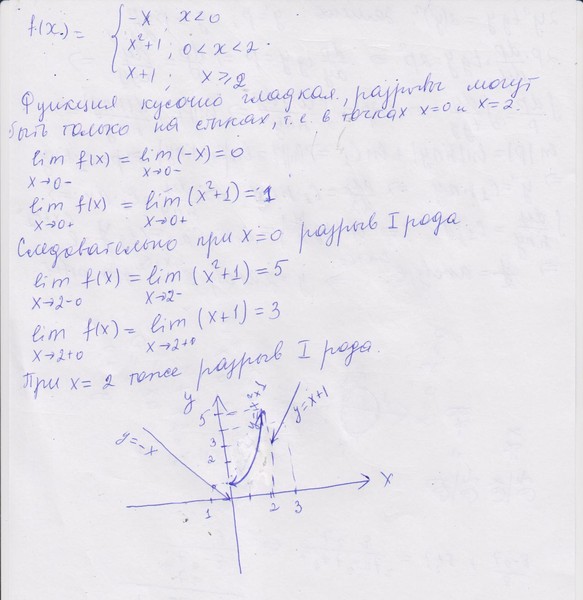 f(x) = { -x ; x<0
x²+1 ; 0<x<2
x+1 ; x⩾2
Функция кусочно гладкая, разрывы могут
быть только на стыках, т.е. в точках x=0 и x=2.
lim f(x) = lim (-x) = 0
x→0- x→0-
lim f(x) = lim (x²+1) = 1
x→0+ x→0+
Следовательно при x=0 разрыв I рода
lim f(x) = lim (x²+1) = 5
x→2-0 x→2-
lim f(x) = lim (x+1) = 3
x→2+0 x→2+0
При x=2 тоже разрыв I рода.
y
5
3
2
y=-x
y=x²+1
y=x+1
x
1 2 3